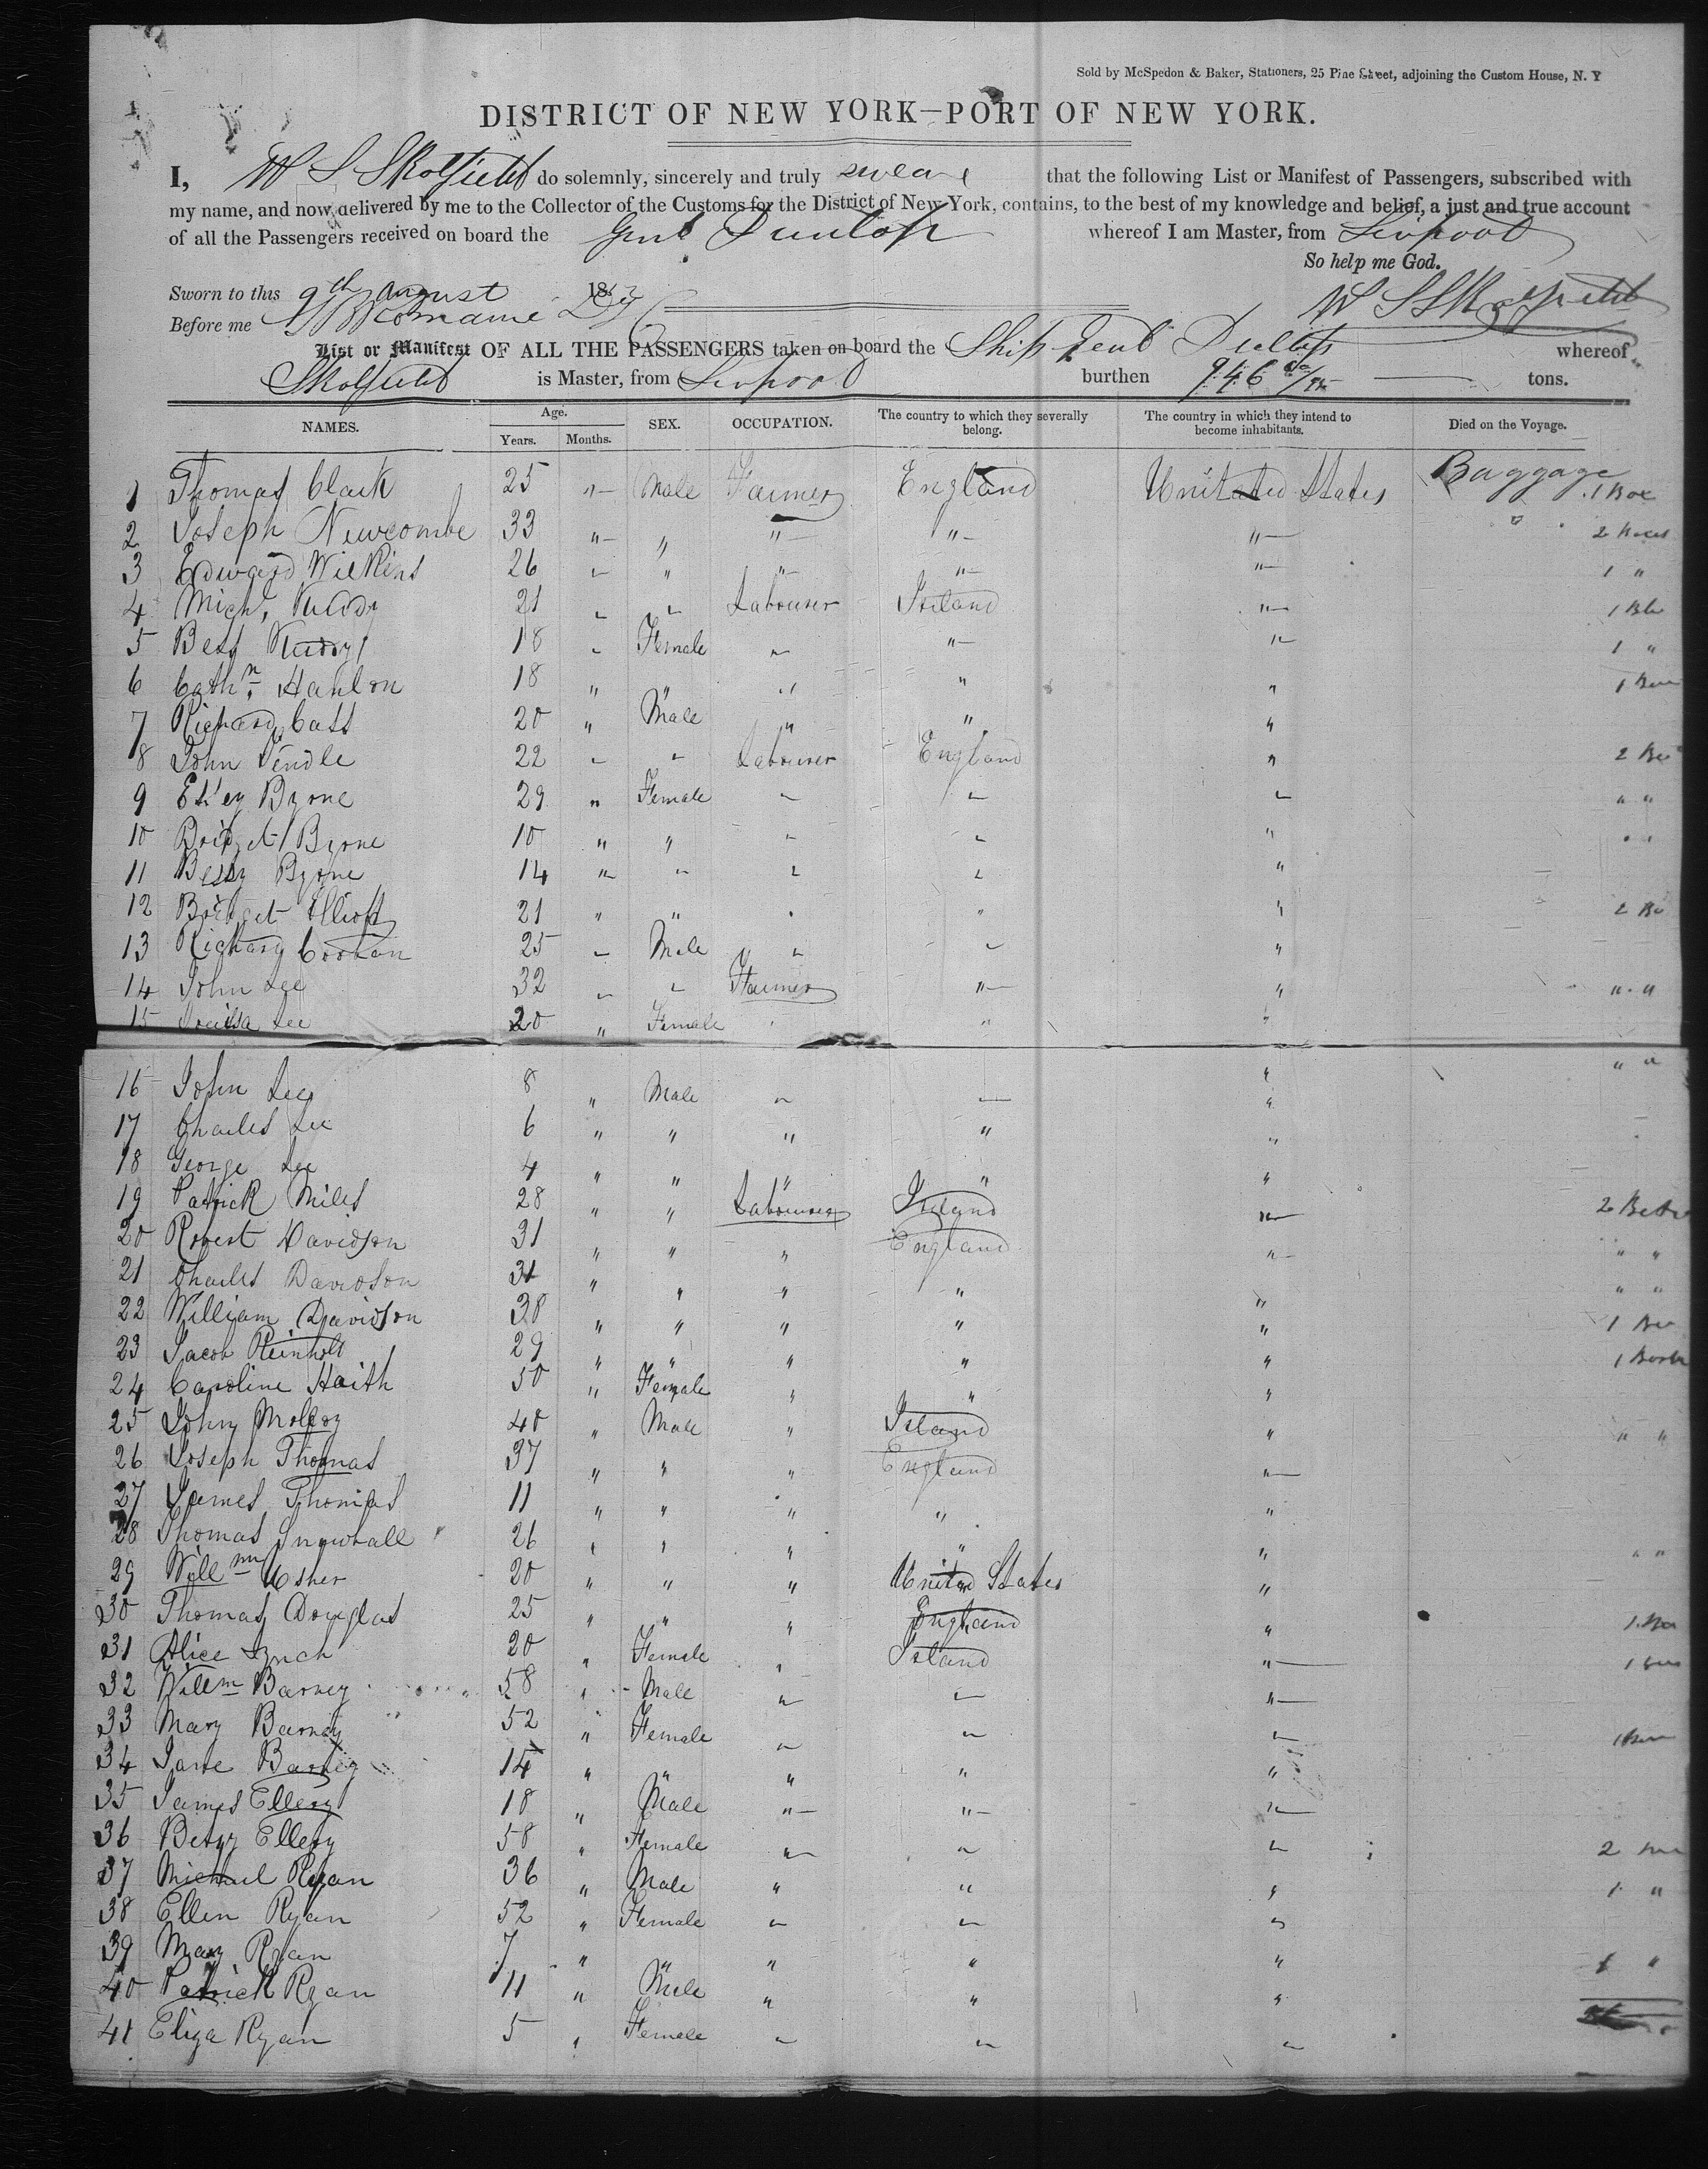 Sold by McSpedon & Baker, Stationers, 25 Pine Street, adjoining the Custom House, N. Y
DISTRICT OF NEW YORK—PORT OF NEW YORK.
I, W S Skolfield do solemnly, sincerely and truly swear that the following List or Manifest of Passengers, subscribed with
my name, and now delivered by me to the Collector of the Customs for the District of New York, contains, to the best of my knowledge and belief, a just and true account
of all the Passengers received on board the Genl Dunlap whereof I am Master, from Liverpool
So help me God.
Sworn to this 9th August 18
W S Skolfield
Before me
List or Manifest OF ALL THE PASSENGERS taken on board the Ship Genl whereof
Skolfield is Master, from Liverpool burthen 946 tons.
NAMES. Age. Years. Months. SEX. OCCUPATION. The country to which they severally belong. The country in which they intend to become inhabitants. Died on the Voyage.
Baggage
1 Thomas Clark 25 " Male Farmer England United States 1 Box
2 Joseph Newcombe 33 " " " " " 2 Boxes
3 Edward Wilkins 26 " " " " " 1 "
4 Michl 21 " " Labourer Ireland "
5 Bess 18 " Female " " " 1 "
6 Cathn Hanlon 18 " " " " "
7 Richard Cass 20 " Male " " "
8 John 22 " " Labourer England "
9 Byrne 29 " Female " " " " "
10 Bridget Byrne 10 " " " " "
11 Bessy Byrne 14 " " " " "
12 Bridget Elliott 21 " " " " "
13 Richard 25 " Male " " "
14 John Lee 32 " " Farmer " " " "
15 Louisa Lee 20 " Female " " " " "
16 John Lee 8 " Male " " "
17 Charles Lee 6 " " " " "
18 George Lee 4 " " " " "
19 Patrick Miles 28 " " Labourer Ireland "
20 Robert Davidson 31 " " " England " " "
21 Charles Davidson 31 " " " " " " "
22 William Davidson 38 " " " " "
23 Jacob Reinholt 29 " " " " "
24 Caroline Haith 50 " Female " " "
25 John Molloy 40 " Male " Ireland " " "
26 Joseph Thomas 37 " " " England "
27 James Thomas 11 " " " " "
28 Thomas Snowball 26 " " " " " " "
29 Willm Usher 20 " " " United States "
30 Thomas Douglas 25 " " " England "
31 Alice Lynch 20 " Female " Ireland "
32 Willm Barney 58 " Male " " "
33 Mary Barney 52 " Female " " "
34 Jane Barney 14 " " " " "
35 James Ellery 18 " Male " " "
36 Betsy Ellery 58 " Female " " "
37 Michael Ryan 36 " Male " " " 1 "
38 Ellen Ryan 52 " Female " " "
39 Mary Ryan 7 " " " " " 1 "
40 Patrick Ryan 11 " Male " " "
41 Eliza Ryan 5 " Female " " "